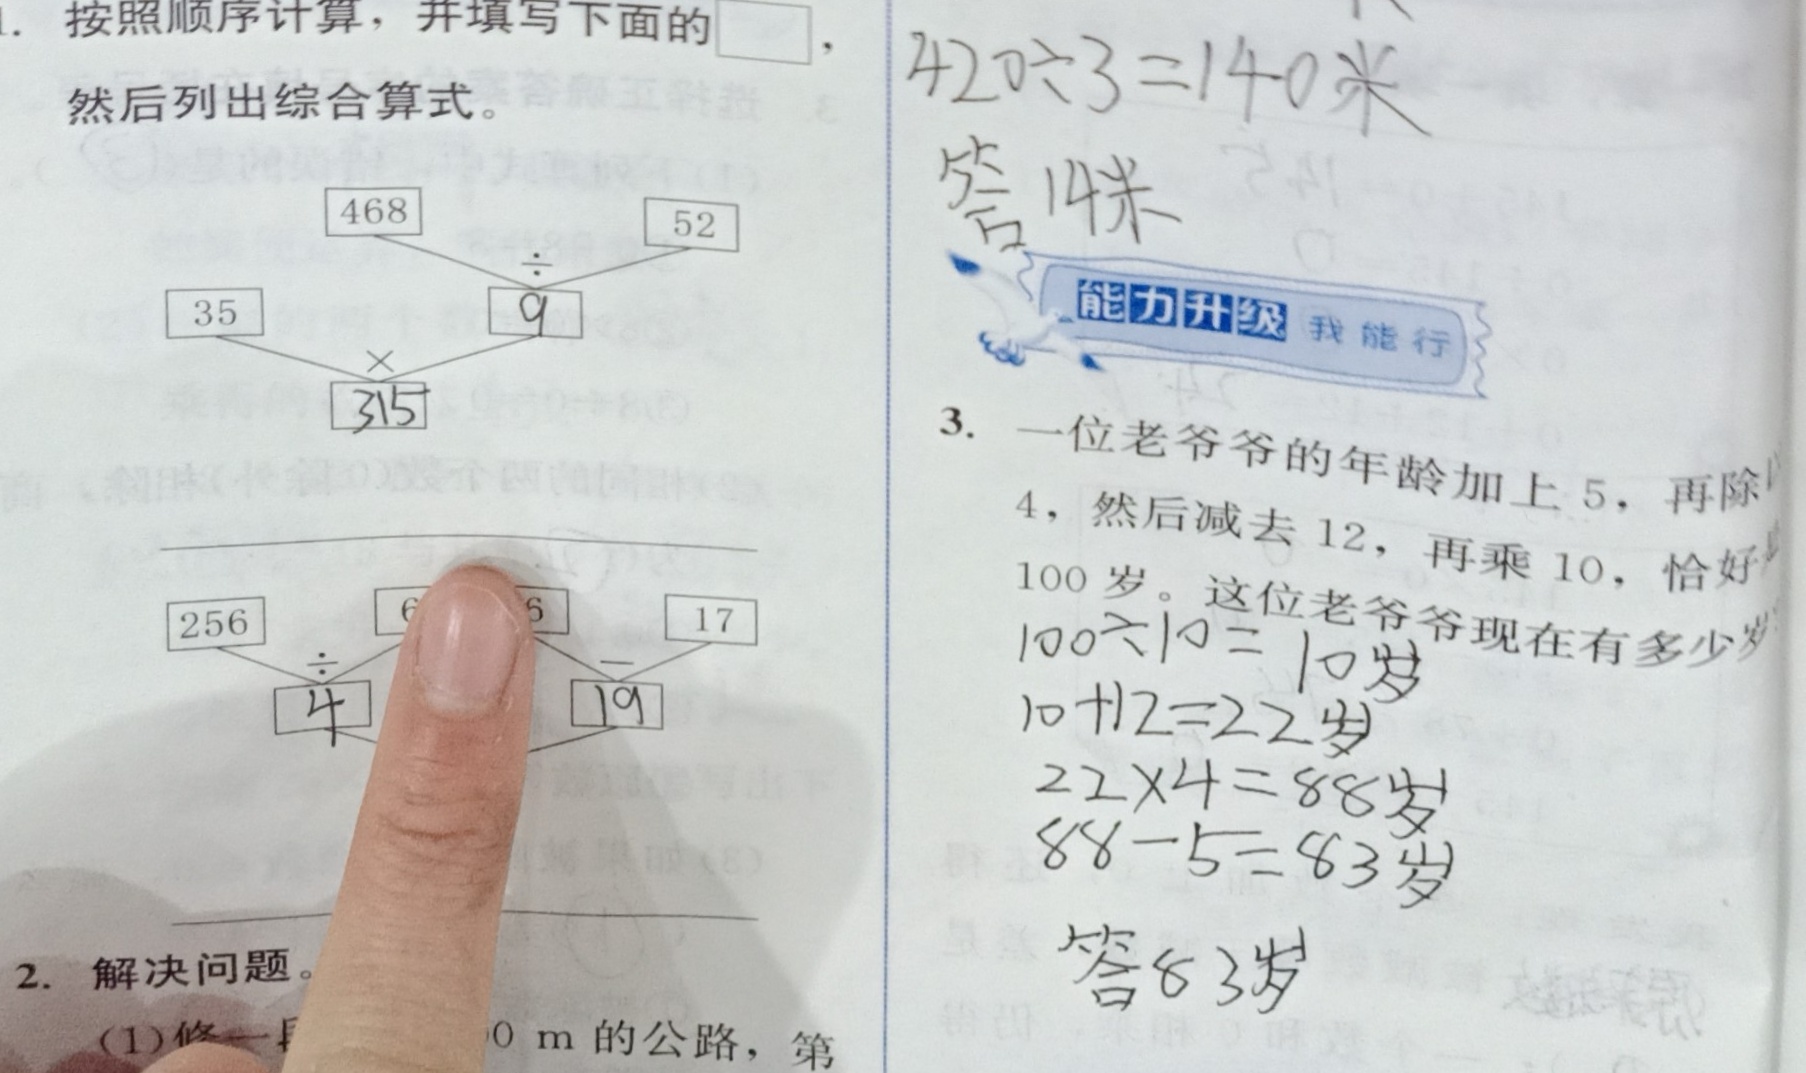 1. 按照顺序计算，并填写下面的
，
然后列出综合算式。
468
52
÷
35
9
×
315
256
6
6
17
÷
−
4
19
2. 解决问题。
(1)修一
0 m 的公路，第
420÷3=140米
答14米
能力升级 我能行
3. 一位老爷爷的年龄加上 5，再除
4，然后减去 12，再乘 10，恰好
100 岁。这位老爷爷现在有多少岁
100÷10=10岁
10+12=22岁
22×4=88岁
88-5=83岁
答83岁